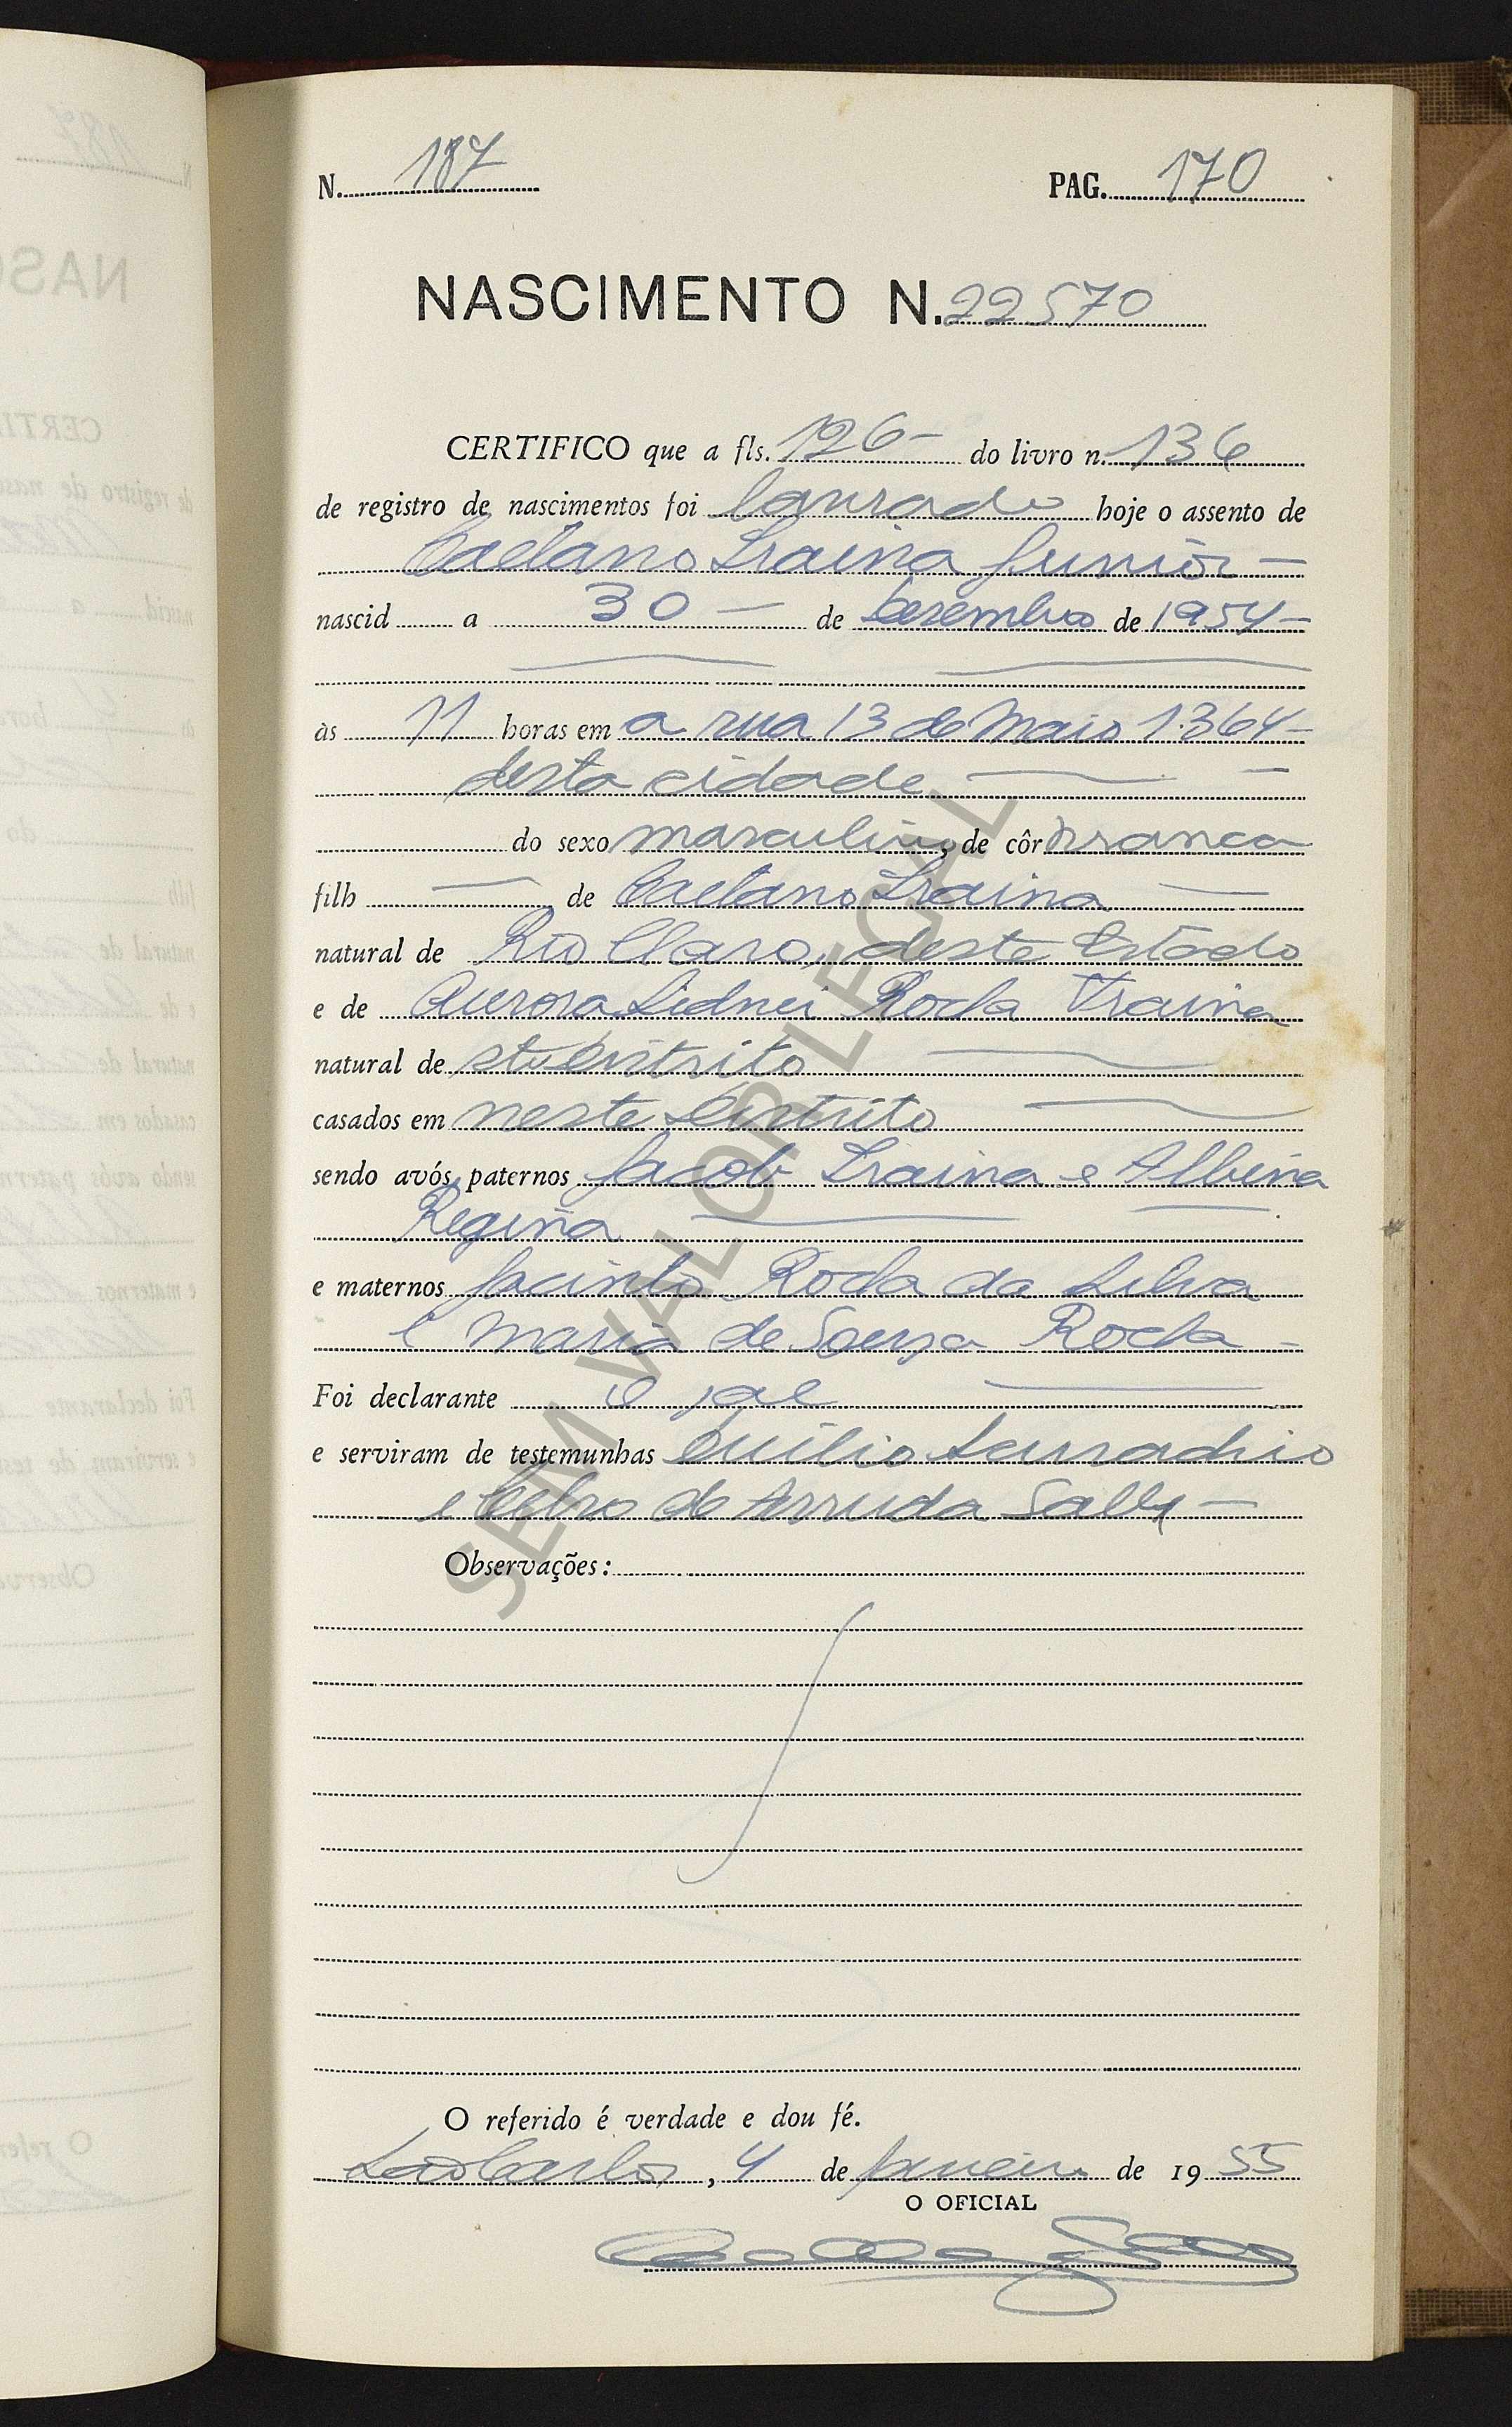 N. 187 PAG. 170
NASCIMENTO N. 22570
CERTIFICO que a fls. 126- do livro n. 136
de registro de nascimentos foi lavrado hoje o assento de
Caetano Traina Junior -
nascid a 30 - de Dezembro de 1954 -
às 11 horas em a rua 13 de Maio 1.364 -
desta cidade -
do sexo masculino, de côr branca
filh - de Caetano Traina -
natural de Rio Claro, deste Estado
e de Aurora Sidnei Roda Traina
natural de distrito
casados em neste Distrito
sendo avós paternos Jacob Traina e Albina
Regina
e maternos Jacinto Roda da Silva
e Maria de Souza Roda -
Foi declarante o pae
e serviram de testemunhas
e de Arruda Salles -
Observações:
O referido é verdade e dou fé.
São Carlos, 4 de Janeiro de 1955
O OFICIAL
SEM VALOR LEGAL